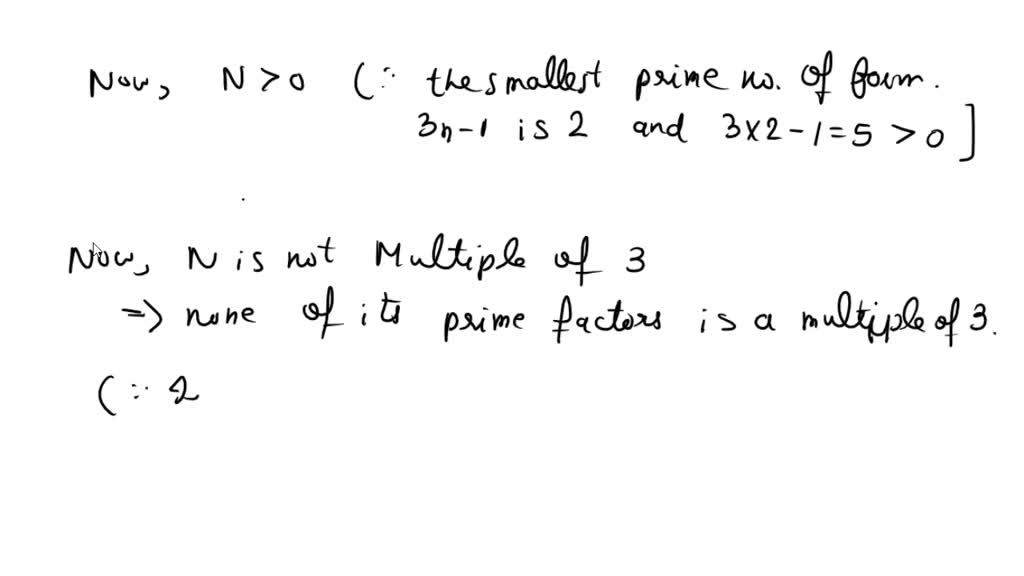 Now, N > 0 (∵ the smallest prime no. of form.
3n-1 is 2 and 3x2-1=5 > 0 ]
Now, N is not Multiple of 3
=> none of its prime factors is a multiple of 3.
(∵ 2